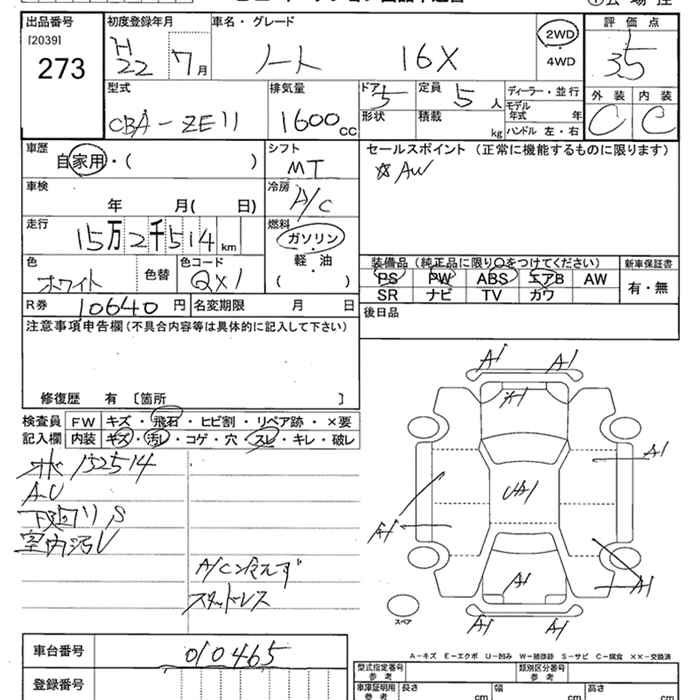 出品番号
[2039]
273
初度登録年月
H 22 7月
車名・グレード
ノート 16X
2WD
・
4WD
評価点
3.5
外装 内装
C C
型式
CBA-ZE11
排気量
1600cc
ドア 5
形状
定員 5人
積載 kg
ディーラー・並行
モデル年式 年
ハンドル 左・右
車歴
自家用・( )
シフト
MT
セールスポイント (正常に機能するものに限ります)
☆AW
車検
年 月( 日)
冷房
A/C
走行
15万2千514km
燃料
ガソリン
・
軽油
・
( )
色
ホワイト
色替
色コード
QX1
装備品(純正品に限り○をつけてください)
PS PW ABS エアB AW
SR ナビ TV カワ
新車保証書
有・無
R券 10640円
名変期限 月 日
後日品
注意事項申告欄(不具合内容等は具体的に記入して下さい)
修復歴 有 〔箇所 〕
検査員
記入欄
FW キズ・飛石・ヒビ割・リペア跡・×要
内装 キズ・汚レ・コゲ・穴・スレ・キレ・破レ
152514
AU
下廻りS
室内汚レ
A/C冷えず
スタッドレス
A1 A1
A1
A1
UA1
A1
A1
A1
A1 A1
スペア
A-キズ E-エクボ U-凹み W-補修跡 S-サビ C-腐食 ××-交換済
車台番号
010465
登録番号
型式指定番号
参考
類別区分番号
参考
車庫証明用
参考
長さ cm
幅 cm
高さ cm